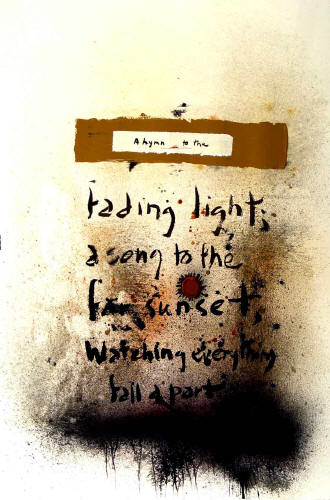 A hymn to the
fading light,
a song to the
far, sunset,
Watching everything
fall apart